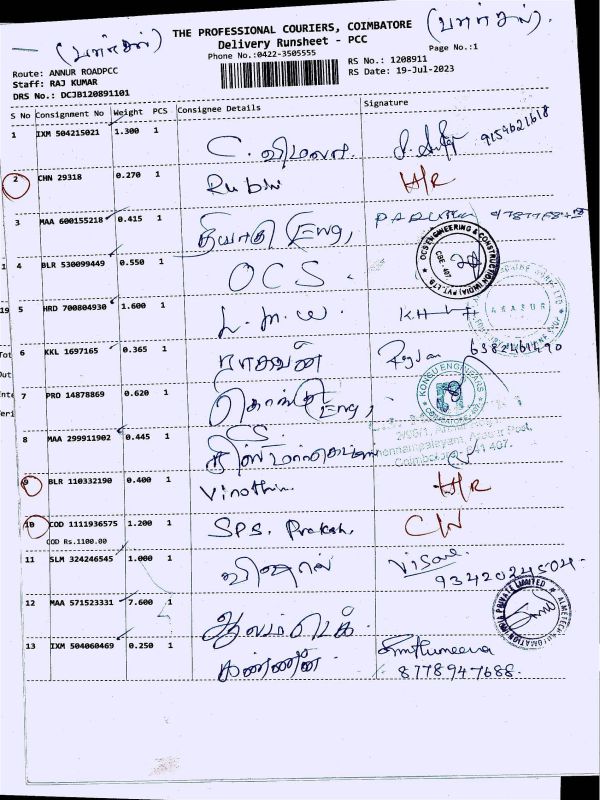 (பார்சல்) THE PROFESSIONAL COURIERS, COIMBATORE (பார்சல்).
Delivery Runsheet - PCC
Phone No.:0422-3505555
Page No.:1
Route: ANNUR ROADPCC
RS No.: 1208911
Staff: RAJ KUMAR
RS Date: 19-Jul-2023
DRS No.: DCJB120891101
S No Consignment No Weight PCS Consignee Details Signature
1 IXM 504215021 1.300 1 C. விமலா 9154621618
2 CHN 29318 0.270 1 Rubhi H/R
3 MAA 600155218 0.415 1 Eng,
4 BLR 530099449 0.550 1 OCS
OCS ENGINEERING & CONSTRUCTION (INDIA) PVT. LTD. CBE - 407
5 HRD 700804930 1.600 1 L.M.W.
ARASUR
6 KKL 1697165 0.365 1 ராகவன் 6382461490
7 PRO 14878869 0.620 1 கொங்கு Eng,
KONGU ENGINEERS
COIMBATORE
8 MAA 299911902 0.445 1 CS
2/95/1,
Coimbatore - 641 407.
9 BLR 110332190 0.400 1 Vinothini H/R
10 COD 1111936575 1.200 1 SPS. Prakash C/N
COD Rs.1100.00
11 SLM 324246545 1.000 1 விஷால் Visal
93420224504
12 MAA 571523331 7.600 1
PRIVATE LIMITED
13 IXM 504060469 0.250 1 கண்ணன்
8778947688.